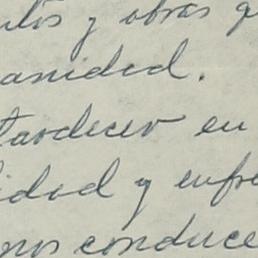 y obras
anidad.
tardecer en
idad y enfre
nos conduce